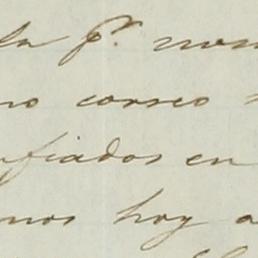 la p.ª
no correo
fiados en
mos hoy a